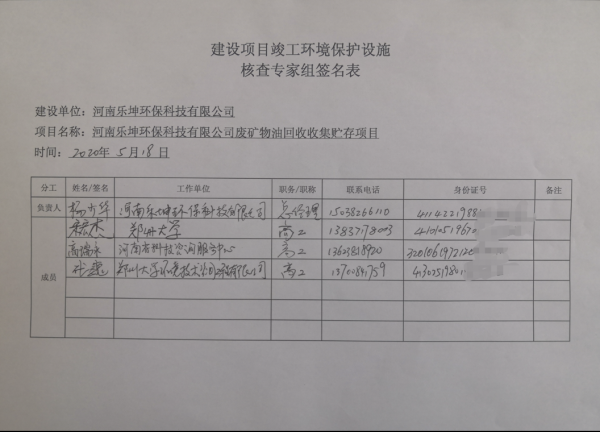 建设项目竣工环境保护设施
核查专家组签名表
建设单位：河南乐坤环保科技有限公司
项目名称：河南乐坤环保科技有限公司废矿物油回收收集贮存项目
时间：2020年5月18日
分工 姓名/签名 工作单位 职务/职称 联系电话 身份证号 备注
负责人 河南乐坤环保科技有限公司 总经理 15038266110
郑州大学 高工 13837178003
高瑞永 河南省科技咨询服务中心 高工
成员 郑州大学环境技术咨询有限公司 高工